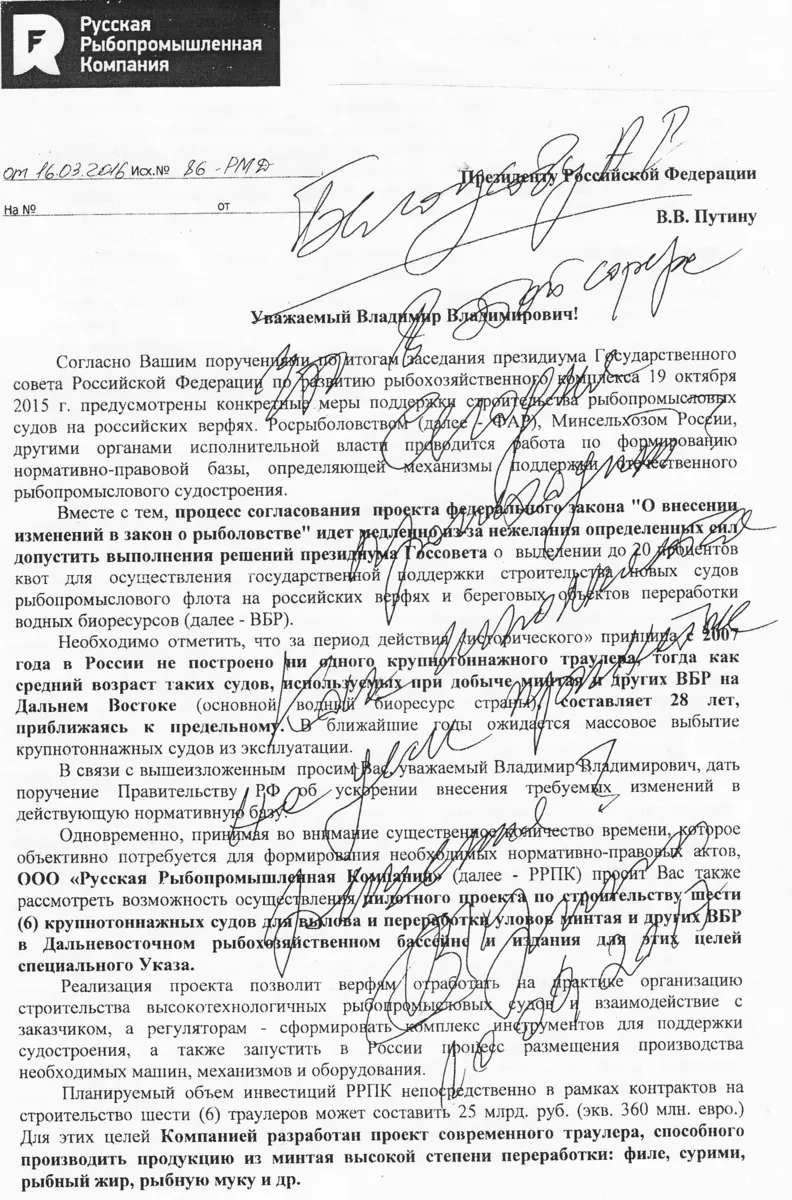 Русская
Рыбопромышленная
Компания
от 16.03.2016 Исх.№ 86-РМД
На № от
Президенту Российской Федерации
В.В. Путину
Белоусову А Р
Уважаемый Владимир Владимирович!
Согласно Вашим поручениям по итогам заседания президиума Государственного
совета Российской Федерации по развитию рыбохозяйственного комплекса 19 октября
2015 г. предусмотрены конкретные меры поддержки строительства рыбопромысловых
судов на российских верфях. Росрыболовством (далее - ФАР), Минсельхозом России,
другими органами исполнительной власти проводится работа по формированию
нормативно-правовой базы, определяющей механизмы поддержки отечественного
рыбопромыслового судостроения.
Вместе с тем, процесс согласования проекта федерального закона "О внесении
изменений в закон о рыболовстве" идет медленно из-за нежелания определенных сил
допустить выполнения решений президиума Госсовета о выделении до 20 процентов
квот для осуществления государственной поддержки строительства новых судов
рыбопромыслового флота на российских верфях и береговых объектов переработки
водных биоресурсов (далее - ВБР).
Необходимо отметить, что за период действия «исторического» принципа с 2007
года в России не построено ни одного крупнотоннажного траулера, тогда как
средний возраст таких судов, используемых при добыче минтая и других ВБР на
Дальнем Востоке (основной водный биоресурс страны), составляет 28 лет,
приближаясь к предельному. В ближайшие годы ожидается массовое выбытие
крупнотоннажных судов из эксплуатации.
В связи с вышеизложенным просим Вас, уважаемый Владимир Владимирович, дать
поручение Правительству РФ об ускорении внесения требуемых изменений в
действующую нормативную базу.
Одновременно, принимая во внимание существенное количество времени, которое
объективно потребуется для формирования необходимых нормативно-правовых актов,
ООО «Русская Рыбопромышленная Компания» (далее - РРПК) просит Вас также
рассмотреть возможность осуществления пилотного проекта по строительству шести
(6) крупнотоннажных судов для вылова и переработки уловов минтая и других ВБР
в Дальневосточном рыбохозяйственном бассейне и издания для этих целей
специального Указа.
Реализация проекта позволит верфям отработать на практике организацию
строительства высокотехнологичных рыбопромысловых судов и взаимодействие с
заказчиком, а регуляторам - сформировать комплекс инструментов для поддержки
судостроения, а также запустить в России процесс размещения производства
необходимых машин, механизмов и оборудования.
Планируемый объем инвестиций РРПК непосредственно в рамках контрактов на
строительство шести (6) траулеров может составить 25 млрд. руб. (экв. 360 млн. евро.)
Для этих целей Компанией разработан проект современного траулера, способного
производить продукцию из минтая высокой степени переработки: филе, сурими,
рыбный жир, рыбную муку и др.